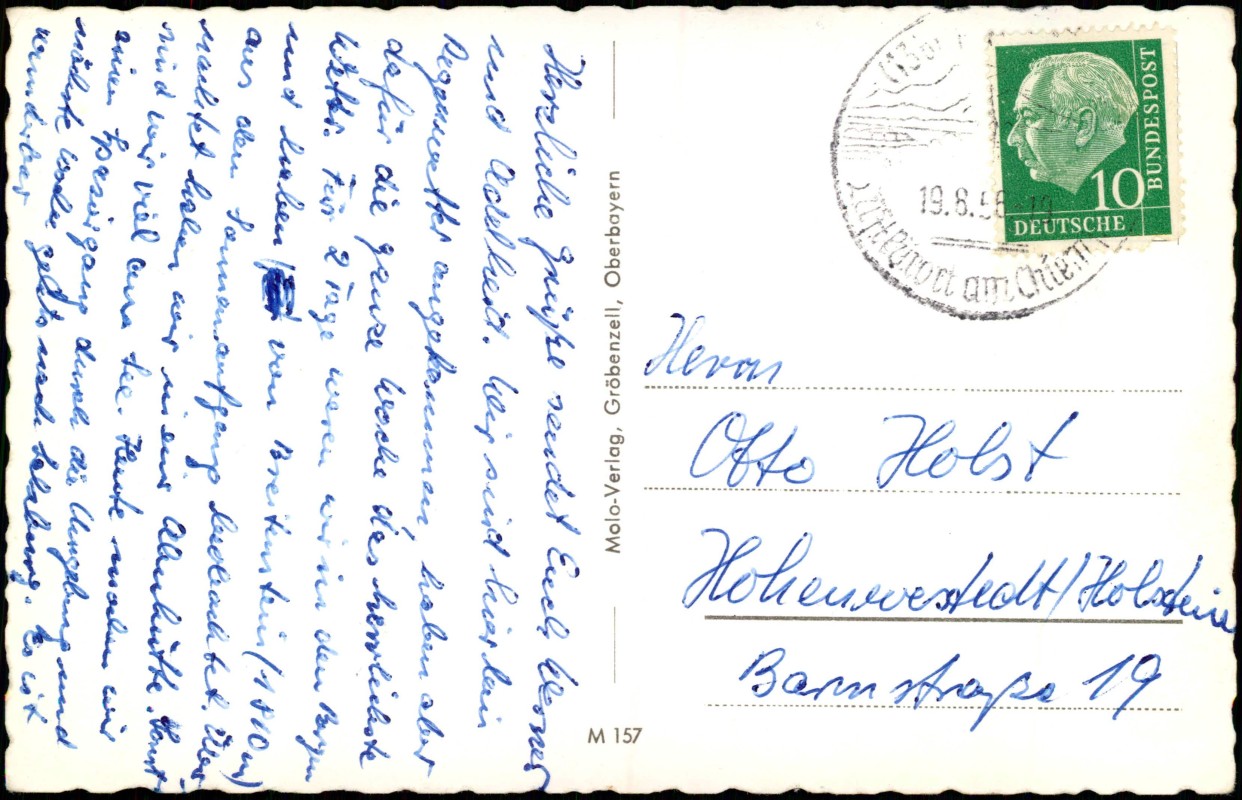 Herzliche Grüße sendet Euch Werner
und Adelheid. Wir sind hier bei
Regenwetter angekommen haben aber
dafür die ganze Woche das herrlichste
Wetter. Für 2 Tage waren wir in den Bergen
und haben von Breitenstein (1800 m)
aus den Sonnenaufgang beobachtet. Über
nachtet haben wir in einer Almhütte. Sonst
sind wir viel am See. Heute machen wir
einen Spaziergang durch die Umgebung und
nächste Woche gehts nach Salzburg. Es ist
wunderbar
Molo-Verlag, Gröbenzell, Oberbayern
M 157
19.8.56-19
Luftkurort am Chiem
BUNDESPOST
10
DEUTSCHE
Herrn
Otto Holst
Hohenwestedt/Holstein
Barmstraße 19